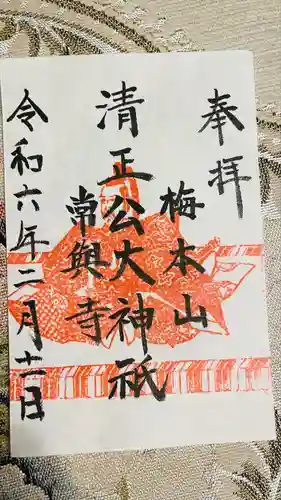 奉拝
梅本山
清正公大神祇
常興寺
令和六年二月十一日